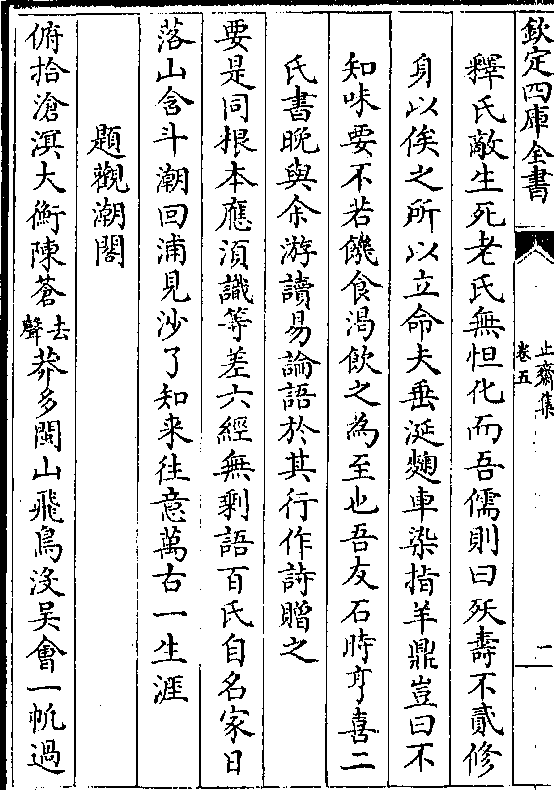 欽定四庫全書
止齋集
卷五
一
釋氏敵生死老氏無怛化而吾儒則曰殀壽不貳修
身以俟之所以立命夫垂涎麴車染指羊鼎豈曰不
知味要不若饑食渴飲之為至也吾友石時亨喜二
氏書晚與余游讀易論語於其行作詩贈之
要是同根本應須識等差六經無剩語百氏自名家日
落山含斗潮回浦見沙了知来往意萬古一生涯
題觀潮閣
俯拾滄溟大衡陳蒼去聲莽多閩山飛鳥沒吴會一帆過